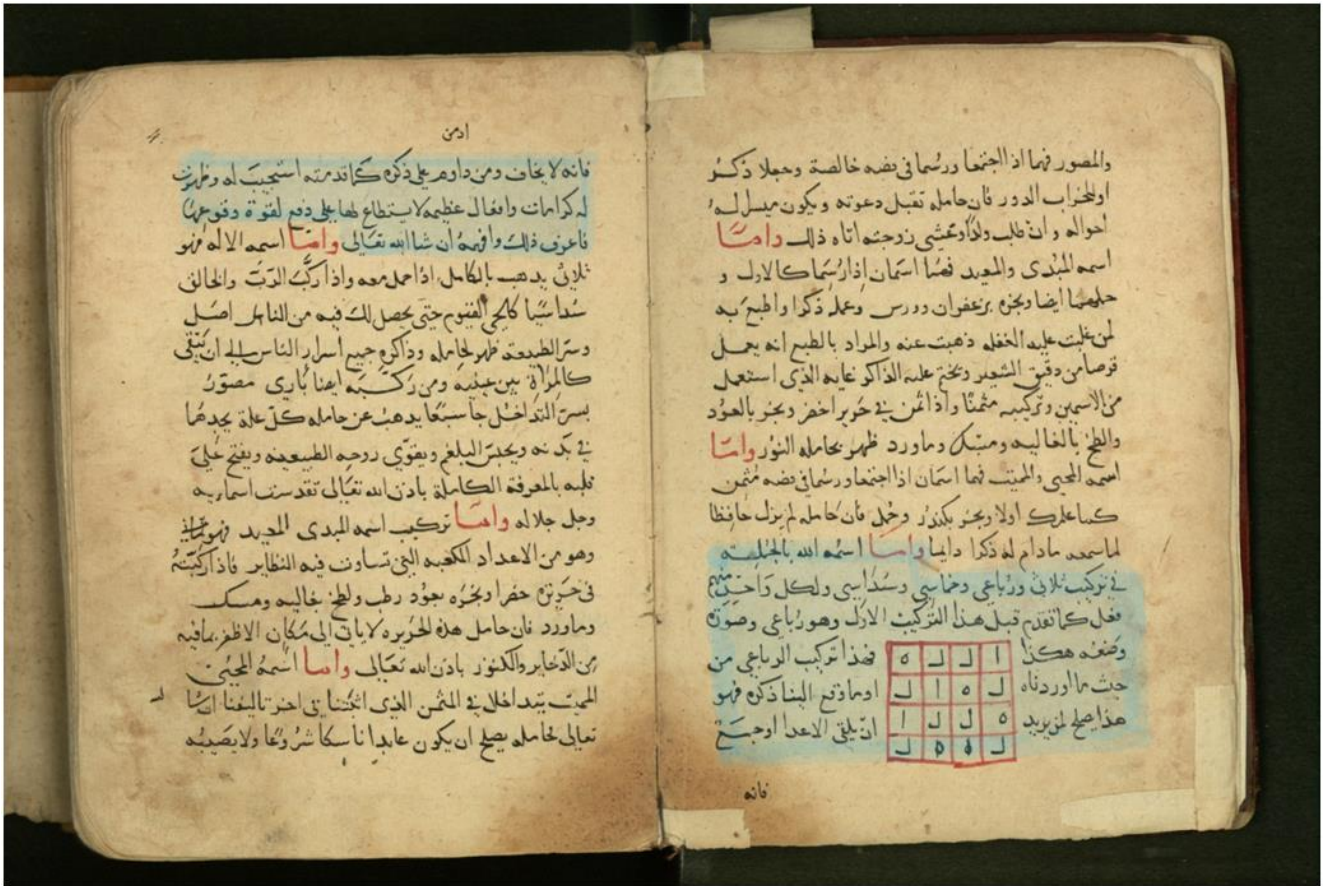 والمصور فهما اذا اجتمعا ورسما في فضه خالصة وجعلا ذكر
او لمحراب الدور فان حامله تقبل دعوته ويكون ميسر له
احواله وان طلب ولدا زوجته اتاه ذلك وامّا
اسمه المبدى والمعيد فهما اسمان اذا رسما كالاول و
حملهما ايضا وبخره بزعفران وورس وعمله ذكرا واطبع به
لمن غلبت عليه الغفله ذهبت عنه والمراد بالطبع انه يعمل
قرصا من دقيق الشعير ويختم عليه الذاكر غايه الذي استعمل
من الاسمين وتركيبه مثمنا واذا اثمن في حرير اخضر وبخر بالعود
والطخ بالغاليه ومسك وماورد ظهر بحامله النور وامّا
اسمه المحيى والمميت فهما اسمان اذا اجتمعا ورسما في فضه مثمن
كما علمت اولا وبخر بكندر وحمل فان حامله لم يزل حافظا
لما سمعه مادام له ذكرا دايما وامّا اسمه الله بالجلسه
في تركيب ثلاثي ورباعي وخماسي وسداسي ولكل واحد منهم
فعل كما تقدم قبل هذا التركيب الاول وهو رباعي وصورة
وضعه هكذا
ا ل ل ه
ل ه ا ل
ه ل ل ا
ل ه ه ل
فهذا تركيب الرباعي من
حيث ما اوردناه
او ما وقع الينا ذكره فهو
هذا يصلح لمن يريد
ان يلقى الاعدا او
فانه
ادمن
فانه لا يخاف ومن داوم على ذكره كما قدمته استجيب له وظهرت
له كرامات وافعال عظيمه لا يستطاع لها على دفع لقوة وقوعها
فاعرف ذلك وافهمه ان شا الله تعالى وامّا اسمه الاله فهو
ثلاثي يذهب بالكامل اذا حمل معه واذا ركب الرب والخالق
سداسيا كالحي القيوم حتى يحصل لك فيه من اصل
وسر الطبيعة ظهر لحامله وذاكره جميع اسرار الناس الى ان تبقى
كالمراة بين عينيه ومن ركبه ايضا باري مصور
بسر التداخل جا سبعا يذهب عن حامله كل علة يجدها
في بدنه ويحبس البلغم ويقوي روحه الطبيعيه ويفتح على
قلبه بالمعرفة الكاملة باذن الله تعالى تقدست اسمايه
وجل جلاله وامّا تركيب اسمه المبدى المعيد فهو
وهو من الاعداد المكعبه التي تساوت فيه النظاير فاذا ركبته
في حريرة خضرا وبخره بعود رطب ولطخ بغاليه ومسك
وماورد فان حامل هذه الحريره لا ياتي الى مكان الا ظهر بما فيه
من الذخاير والكنوز باذن الله تعالى وامّا اسمه المحيى
المميت يتداخل في المثمن الذي اثبتنا في اخر تاليفنا ان شا
تعالى لحامله يصلح ان يكون عابدا ناسكا ولا يصيبه